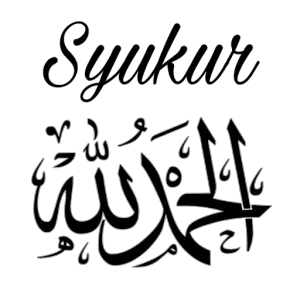 Syukur
الحمد لله